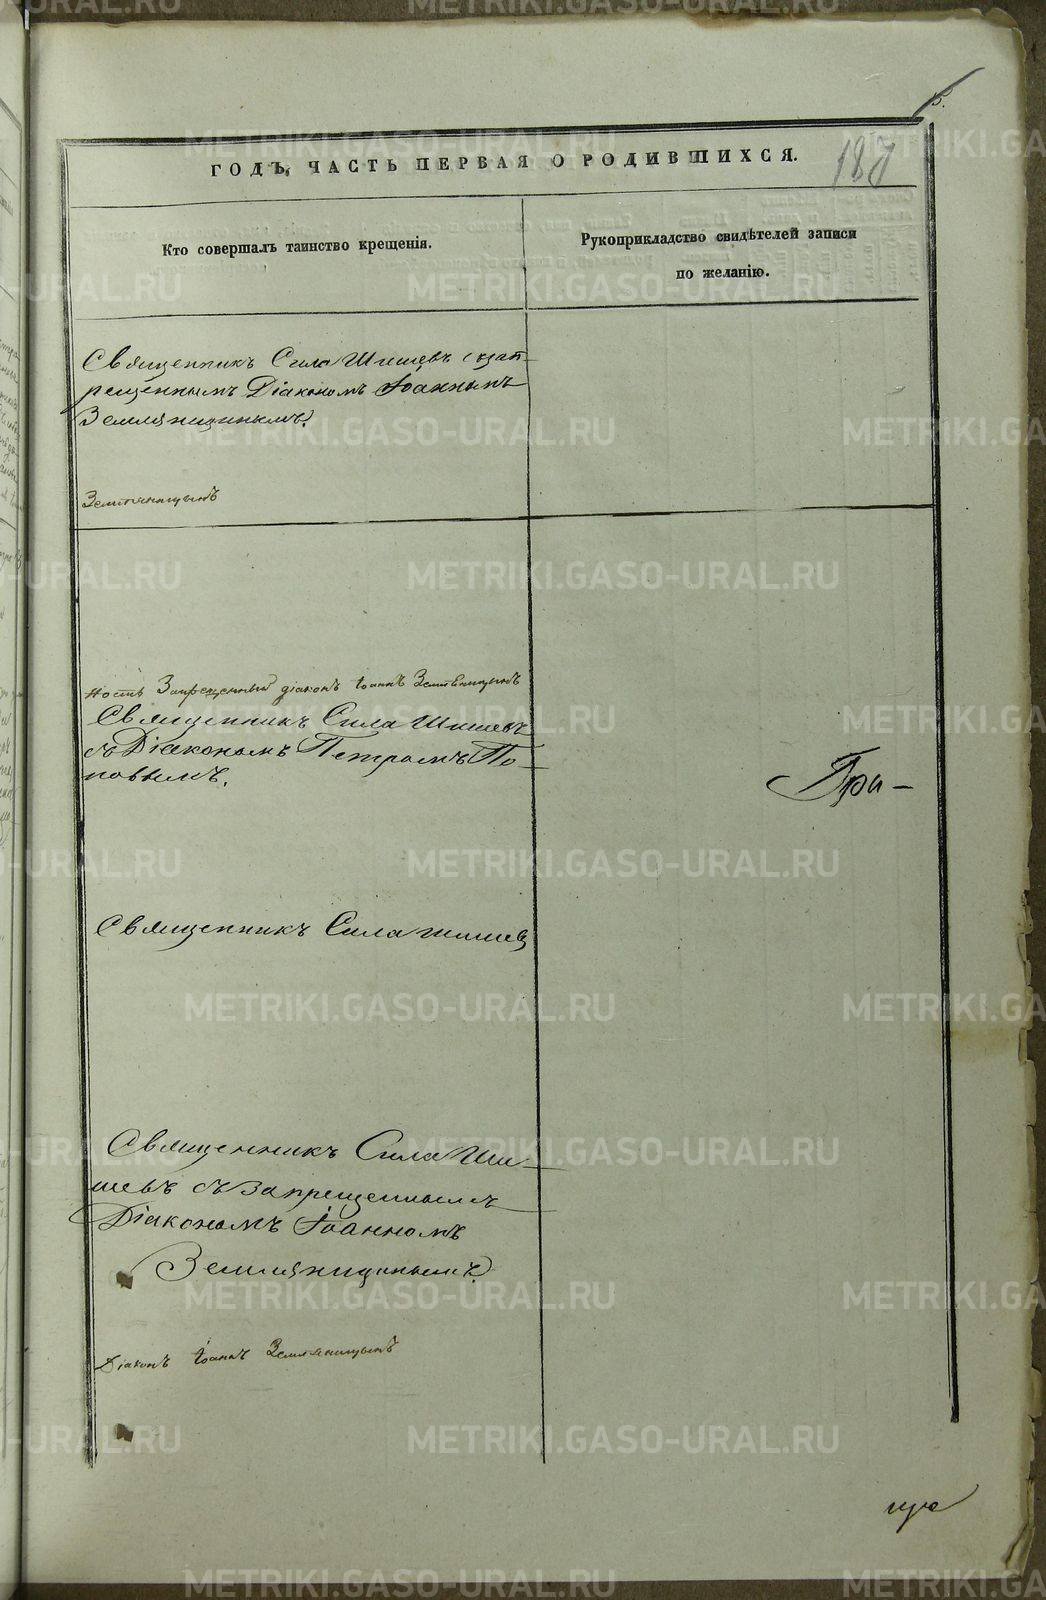 5.
ГОДЪ, ЧАСТЬ ПЕРВАЯ О РОДИВШИХСЯ.
187
Кто совершалъ таинство крещенія.
Рукоприкладство свидѣтелей записи
по желанію.
Священникъ Сила Шишевъ с зап-
рещеннымъ Діакономъ Іоанномъ
Земляницинымъ.
Земляницынъ
ность Запрещенный діаконъ Іоаннъ Земляницынъ
Священникъ Сила Шишевъ
съ Діакономъ Петромъ По-
повымъ.
При-
Священникъ Сила Шишев
Священникъ Сила Ши-
шевъ съ запрещеннымъ
Діакономъ Іоанномъ
Землянициными
Діаконъ Іоаннъ Земляницынъ
METRIKI.GASO-URAL.RU